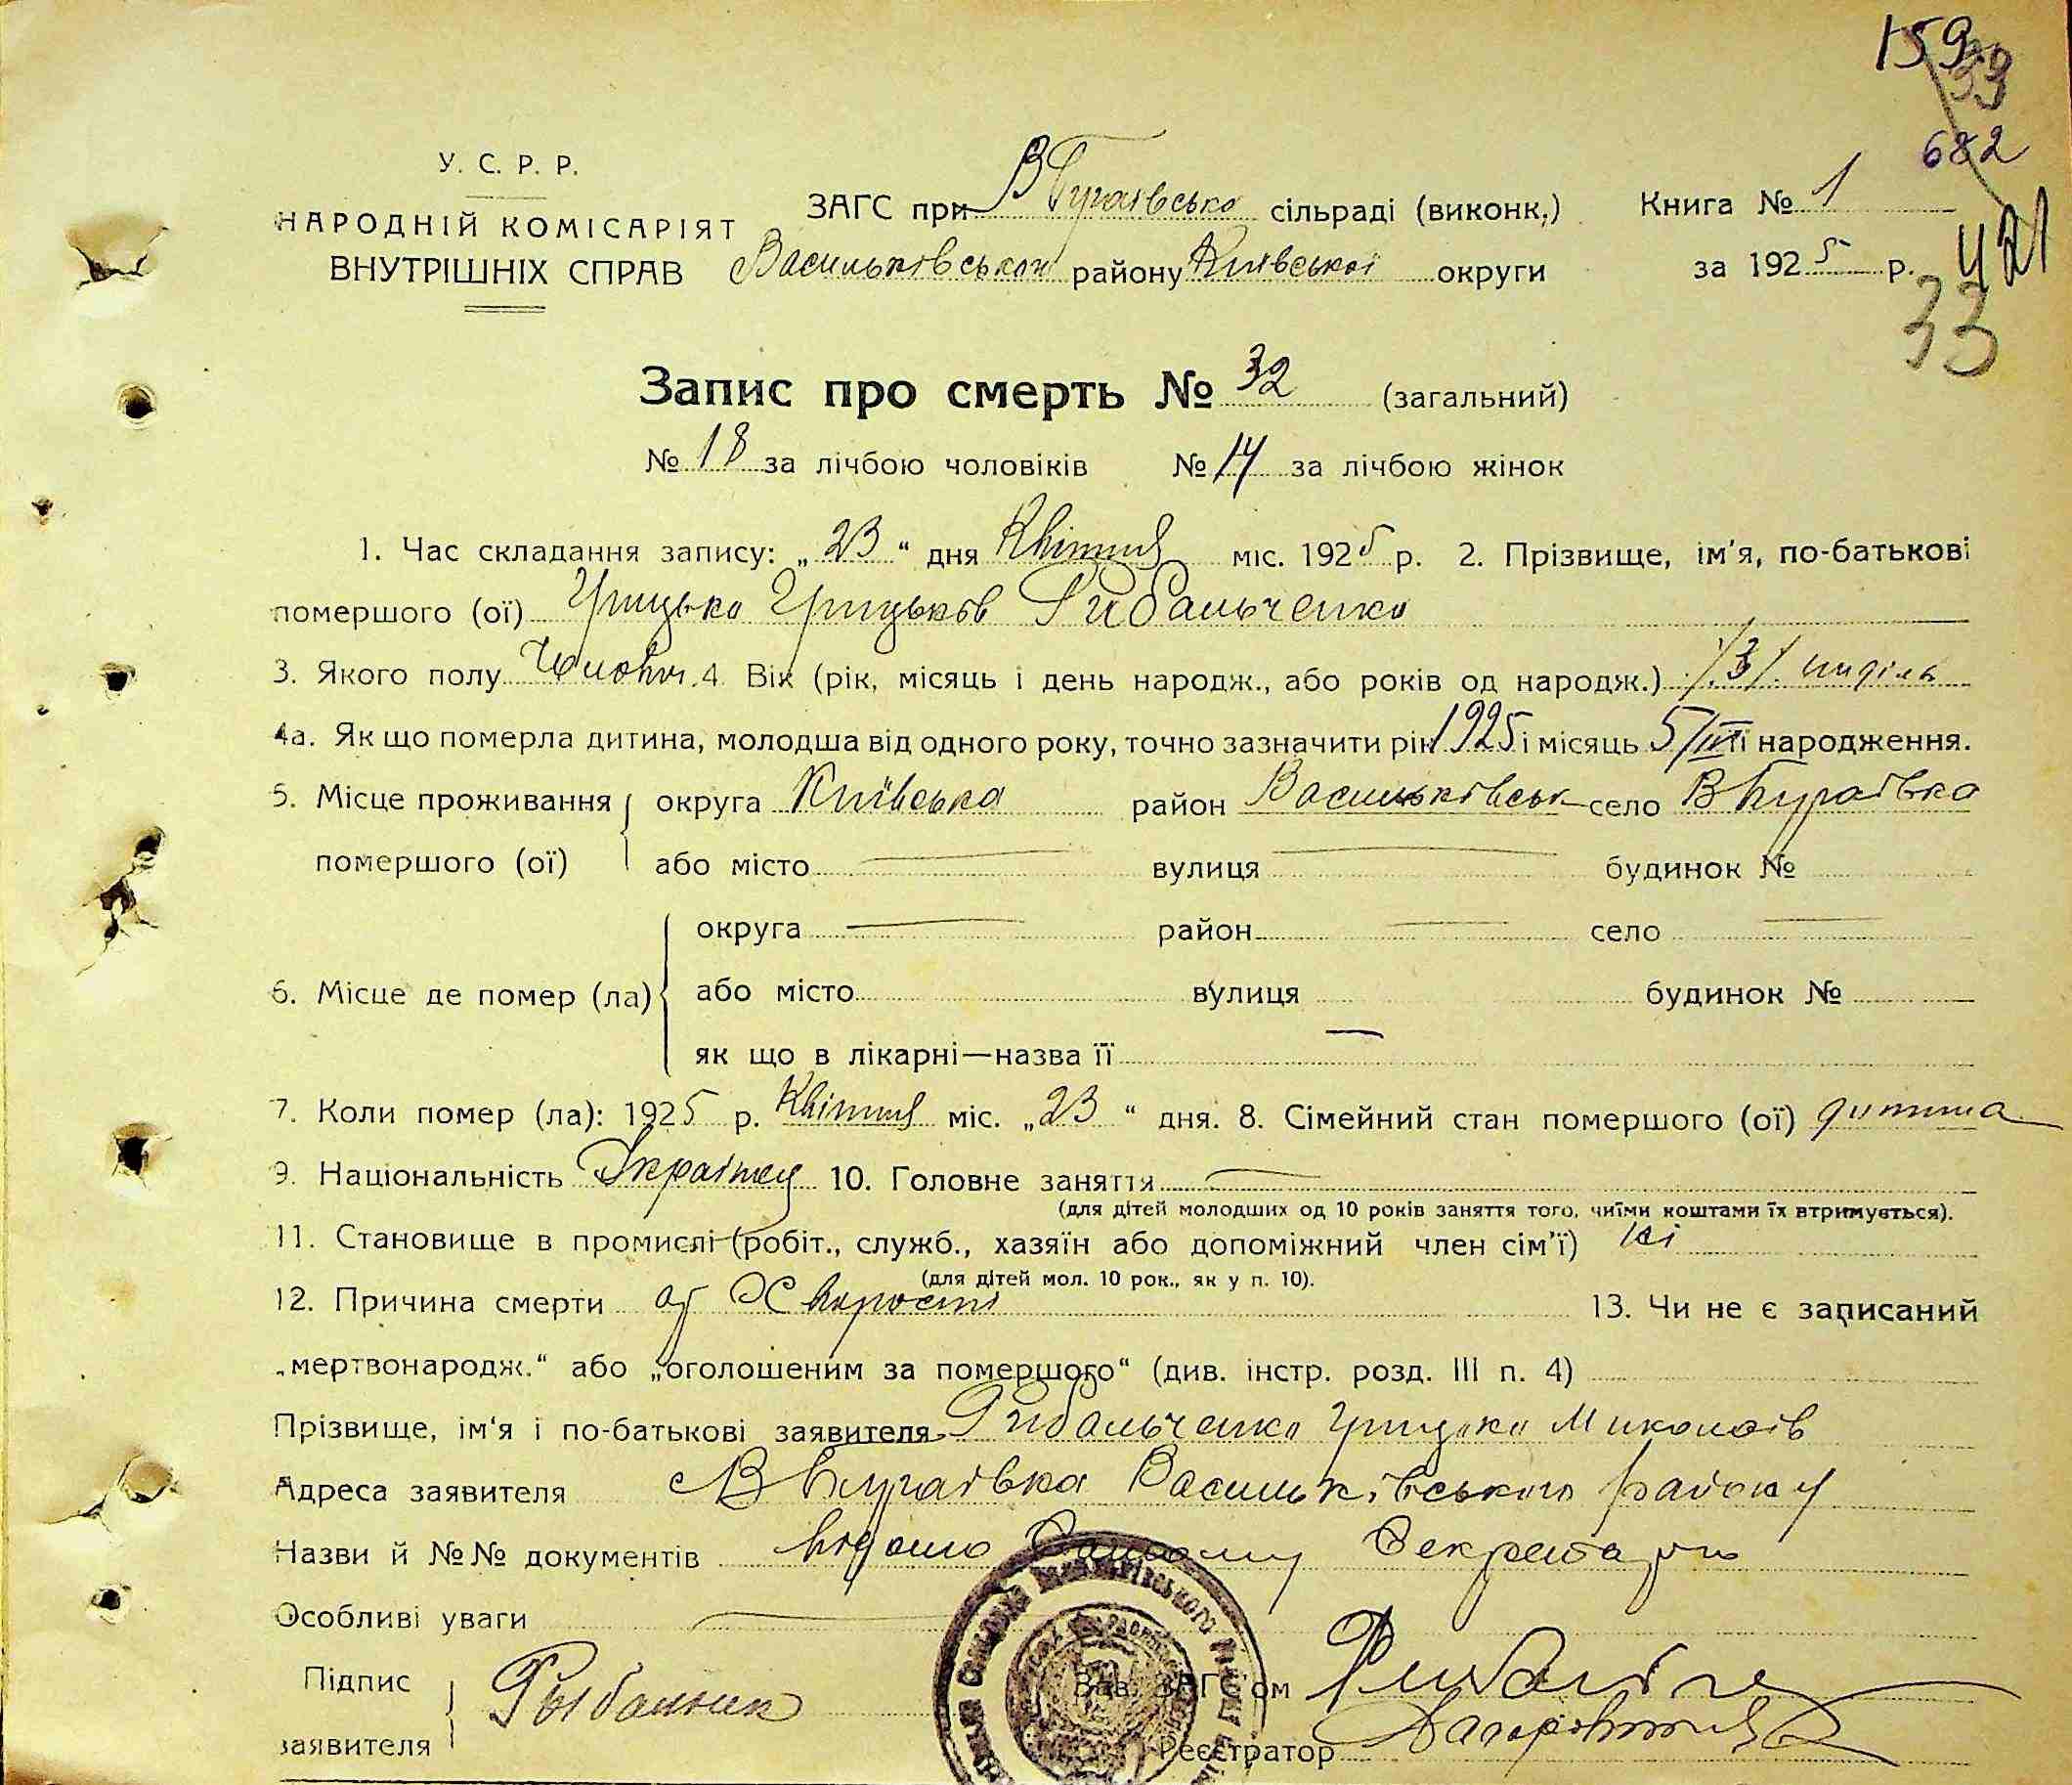 159
33
682
У. С. Р. Р.
НАРОДНІЙ КОМІСАРІЯТ
ВНУТРІШНІХ СПРАВ
ЗАГС при В Бугаівсько сільраді (виконк.)
Книга № 1
Васильківського району Київської округи
за 1925 р.
421
33
Запис про смерть № 32 (загальний)
№ 18 за лічбою чоловіків № 14 за лічбою жінок
1. Час складання запису: „23“ дня Квітня міс. 1925 р. 2. Прізвище, ім'я, по-батькові
помершого (ої) Грицько Грицьків Рибальченко
3. Якого полу Чоловіч. 4. Вік (рік, місяць і день народж., або років од народж.) /3/ неділь
4а. Як що померла дитина, молодша від одного року, точно зазначити рік 1925 і місяць 5/IV її народження.
5. Місце проживання помершого (ої) округа Київська район Васильківськ село В Бугаівка
або місто вулиця будинок №
6. Місце де помер (ла) округа район село
або місто вулиця будинок №
як що в лікарні—назва її
7. Коли помер (ла): 1925 р. Квітня міс. „23“ дня. 8. Сімейний стан помершого (ої) дитина
9. Національність Українец 10. Головне заняття
(для дітей молодших од 10 років заняття того, чиїми коштами їх втримується).
11. Становище в промислі (робіт., служб., хазяїн або допоміжний член сім'ї) ні
(для дітей мол. 10 рок., як у п. 10).
12. Причина смерти од Хворости 13. Чи не є записаний
„мертвонародж.“ або „оголошеним за помершого“ (див. інстр. розд. III п. 4)
Прізвище, ім'я і по-батькові заявителя Рибальченко Грицько Миколаів
Адреса заявителя В Бугаівка Васильківського району
Назви й №№ документів відомо Секретарю
Особливі уваги
Підпис заявителя Рыбальчик
Зав. ЗАГС'ом
Реєстратор